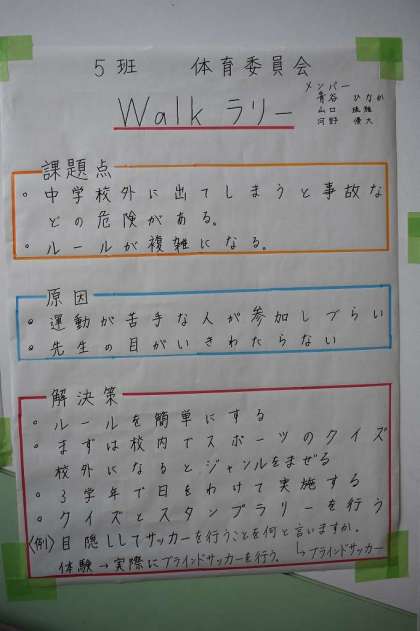 5班 体育委員会
メンバー
青谷 ひなか
山口
河野 優大
Walk ラリー
課題点
• 中学校外に出てしまうと事故な
どの危険がある。
• ルールが複雑になる。
原因
• 運動が苦手な人が参加しづらい
• 先生の目がいきわたらない
解決策
• ルールを簡単にする
• まずは校内でスポーツのクイズ
校外になるとジャンルをまぜる
• 3学年で日をわけて実施する
• クイズとスタンプラリーを行う
〈例〉目隠ししてサッカーを行うことを何と言いますか。
↳ブラインドサッカー
体験→実際にブラインドサッカーを行う。